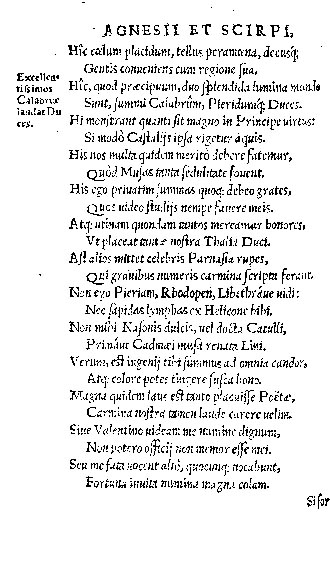 AGNESII ET SCIRPI,
Hîc cœlum placidum, tellus peramœna, decusq;
Gentis conueniens cum regione sua,
Excellen
tissimos
Calabriæ
laudat Du
ces.
Hîc, quod præcipuum, duo splendida lumina mundo
Sunt, summi Calabrûm, Pieridumq; Duces.
Hi monstrant quanti sit magno in Principe virtus:
Si modò Castalijs ipsa rigetur aquis.
His nos multa quidem meritò debere fatemur,
Quòd Musas tanta sedulitate fouent.
His ego priuatim summas quoq; debeo grates,
Quos video studijs nempe fauere meis.
Atq; utinam quondam tantos mereamur honores,
Vt placeat tantæ nostra Thalia Duci.
Ast alios mittet celebris Parnasia rupes,
Qui grauibus numeris carmina scripta ferant.
Non ego Pieriam, Rhodopen, Libethráue uidi:
Nec sapidas lymphas ex Helicone bibi,
Non mihi Nasonis dulcis, uel docta Catulli,
Prindue Cadmæi musa renata Liui.
Verum, est ingenij tibi summus ad omnia candor,
Atq; colore potes turgere fusca bono.
Magna quidem laus est tanto placuisse Poëtæ,
Carmina nostra tamen laude carere uelim.
Siue Valentino uideam me numine dignum,
Non potero officij non memor esse mei.
Seu me fata uocent aliò, quocunq; uocabunt,
Fortuna inuita numina magna colam.
Si for